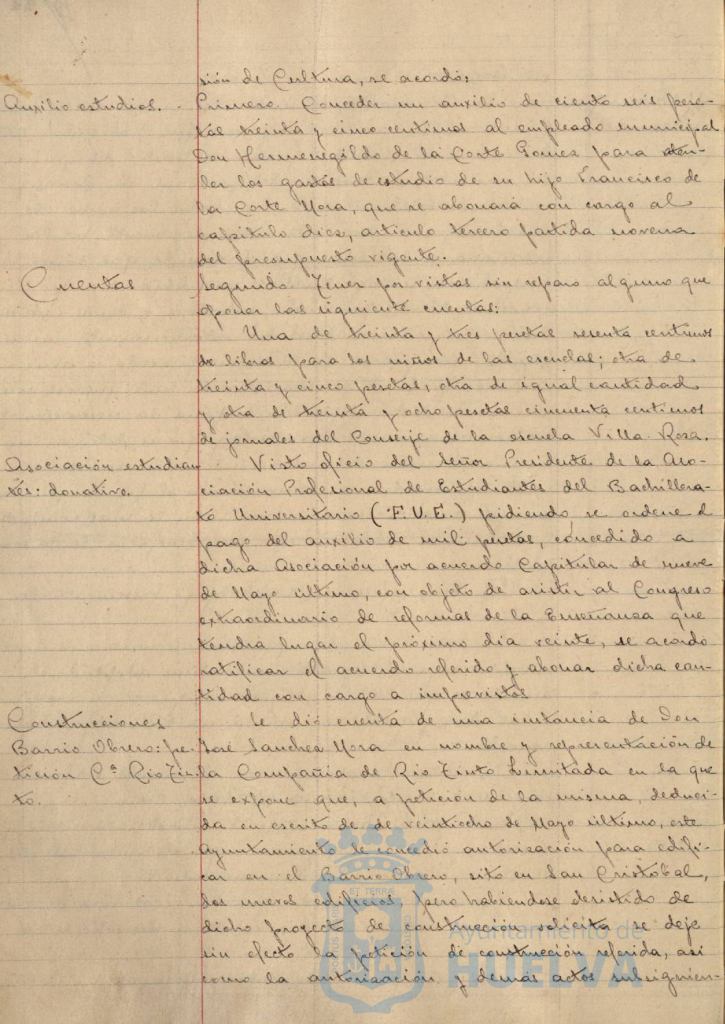 sión de Cultura, se acordó:
Auxilio estudios. - Primero Conceder un auxilio de ciento seis pese-
tas treinta y cinco centimos al empleado municipal
Don Hermenegildo de la Corte Gomez para aten-
der los gastos de estudio de su hijo Francisco de
la Corte Mora, que se abonará con cargo al
capitulo diez, articulo tercero partida novena
del presupuesto vigente.
Cuentas Segundo Tener por vistas sin reparo alguno que
oponer las siguiente cuentas:
Una de treinta y tres pesetas sesenta centimos
de libros para los niños de las escuelas; otra de
treinta y cinco pesetas, otra de igual cantidad
y otra de treinta y ocho pesetas cincuenta centimos
de jornales del Conserje de la escuela Villa Rosa.
Asociación estudian Visto oficio del Señor Presidente de la Aso-
tes: donativo. ciación Profesional de Estudiantes del Bachillera-
to Universitario (F.U.E.) pidiendo se ordene el
pago del auxilio de mil pesetas, concedido a
dicha Asociación por acuerdo Capitular de nueve
de Mayo último, con objeto de asistir al Congreso
extraordinario de reformas de la Enseñanza que
tendra lugar el próximo dia veinte, se acordó
ratificar el acuerdo referido y abonar dicha can-
tidad con cargo a imprevistos
Construcciones Se dió cuenta de una instancia de Don
Barrio Obrero: pe- José Sanchez Mora en nombre y representación de
tición Cª Rio Tin- la Compañia de Rio Tinto Limitada en la que
to. se expone que, a petición de la misma, deduci-
da en escrito de de veintiocho de Mayo último, este
Ayuntamiento le concedió autorización para edifi-
car en el Barrio Obrero, sito en San Cristóbal,
dos nuevos edificios, pero habiendose desistido de
dicho proyecto de construcción solicita se deje
sin efecto la petición de construcción referida, asi
como la autorización y demás actos subsiguien-
Ayuntamiento de
HUELVA